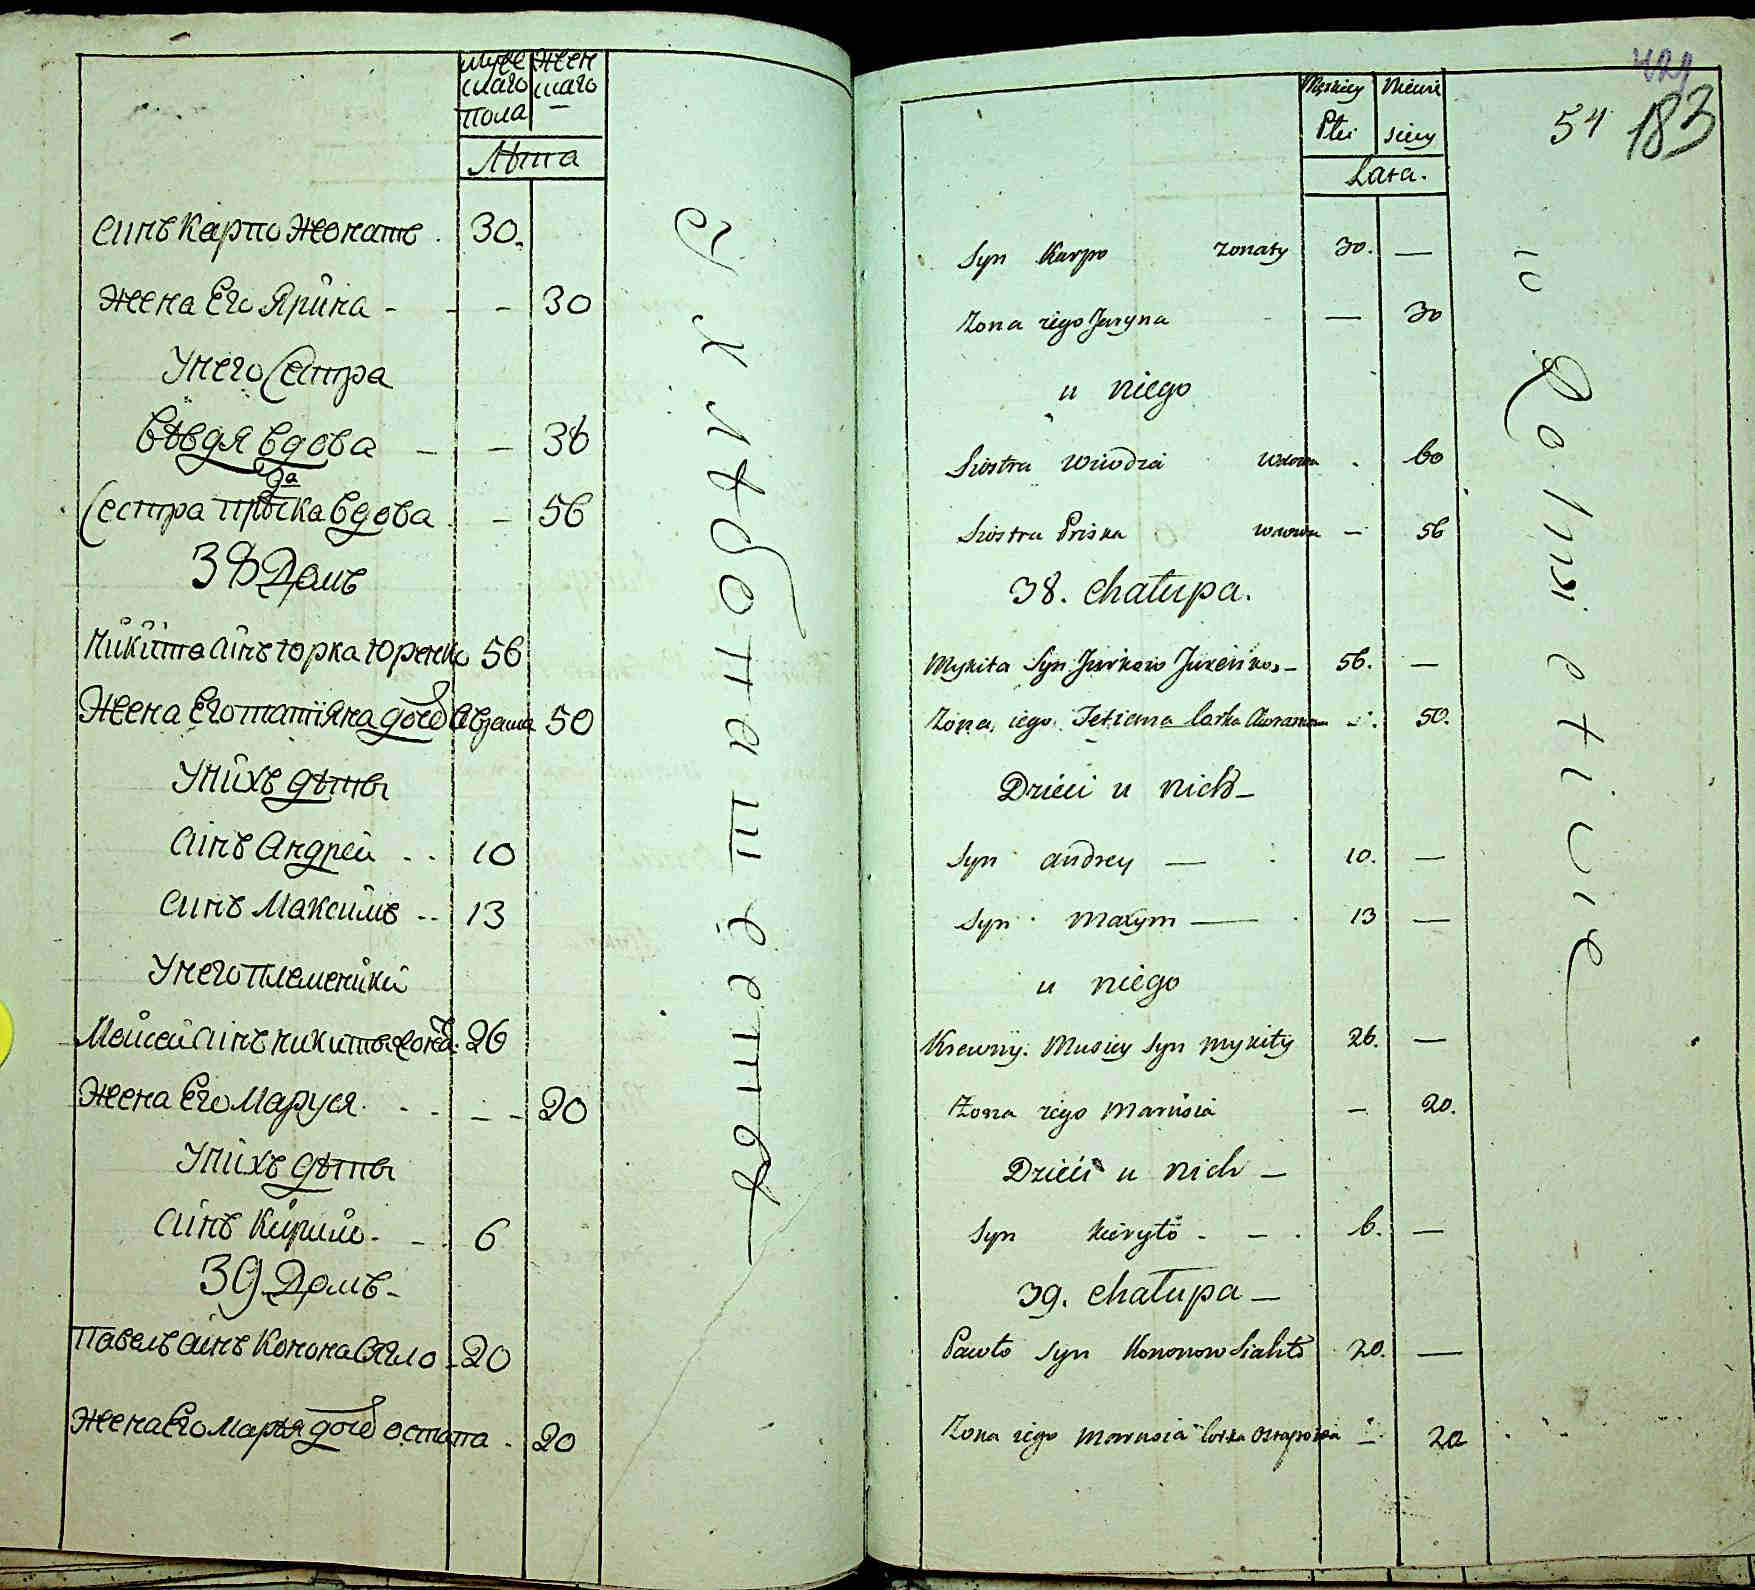 мужескаго женскаго
пола
Лѣта
синъ Карпо женатъ 30.
Жена Его Ярина - - - 30
У него Сестра
Вѣвдя вдова - - 38
Сестра 2аПриска вдова - 56
38 Домъ
Никита синъ Юрка Юренко 56
Жена Его Татіяна дочь Аврама 50
У нихъ дѣты
синъ Андрей . . 10
синъ Максимъ .. 13
У него племеники
Мойсей синъ Никиты 26
Жена Его Маруся . . - - 20
У нихъ дѣты
синъ Кирило - - . 6
39 Домъ -
Павелъ синъ Конона Сягло - 20
Жена Его Марья дочь Остапа . 20
в хлѣбопашествѣ
Męskiey Niewie
Płci sciey
Lata.
54 183
Syn Karpo żonaty 30. —
Żona iego Jaryna - — 30
u niego
Siostra Wiwdzia wdowa . 60
Siostra Priska wdowa — 56
38. Chałupa.
Mykita Syn Jurkow Jurenko - 56. —
Żona iego Tetiana Corka Awramowa - . 50.
Dzieci u nich -
Syn Andrey — . 10. —
Syn Maxym — . 13 —
u niego
Krewny. Musiey Syn Mykity 26. —
Żona iego Marusia — 20.
Dzieci u nich -
Syn Kiryło - - . 6. —
39. Chałupa —
Pawło Syn Kononow Siahło 20. —
Żona iego Marusia Corka Ostapowa — 20
w Rolnictwie